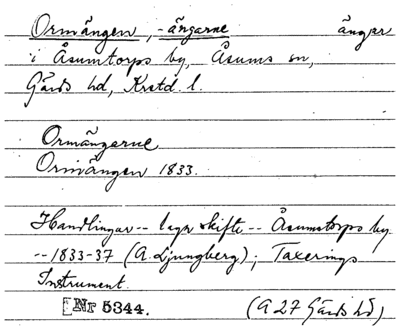 Ormängen, -ängarne ängar
i Åsumtorps by, Åsums sn,
Gärds hd, Krstd. l.
Ormängarne
Ormängen 1833.
Handlingar -- laga skifte -- Åsumstorps by.
-- 1833-37 (A. Ljungberg); Taxerings
Instrument.
Nr 5344. (A 27 Gärds hd)